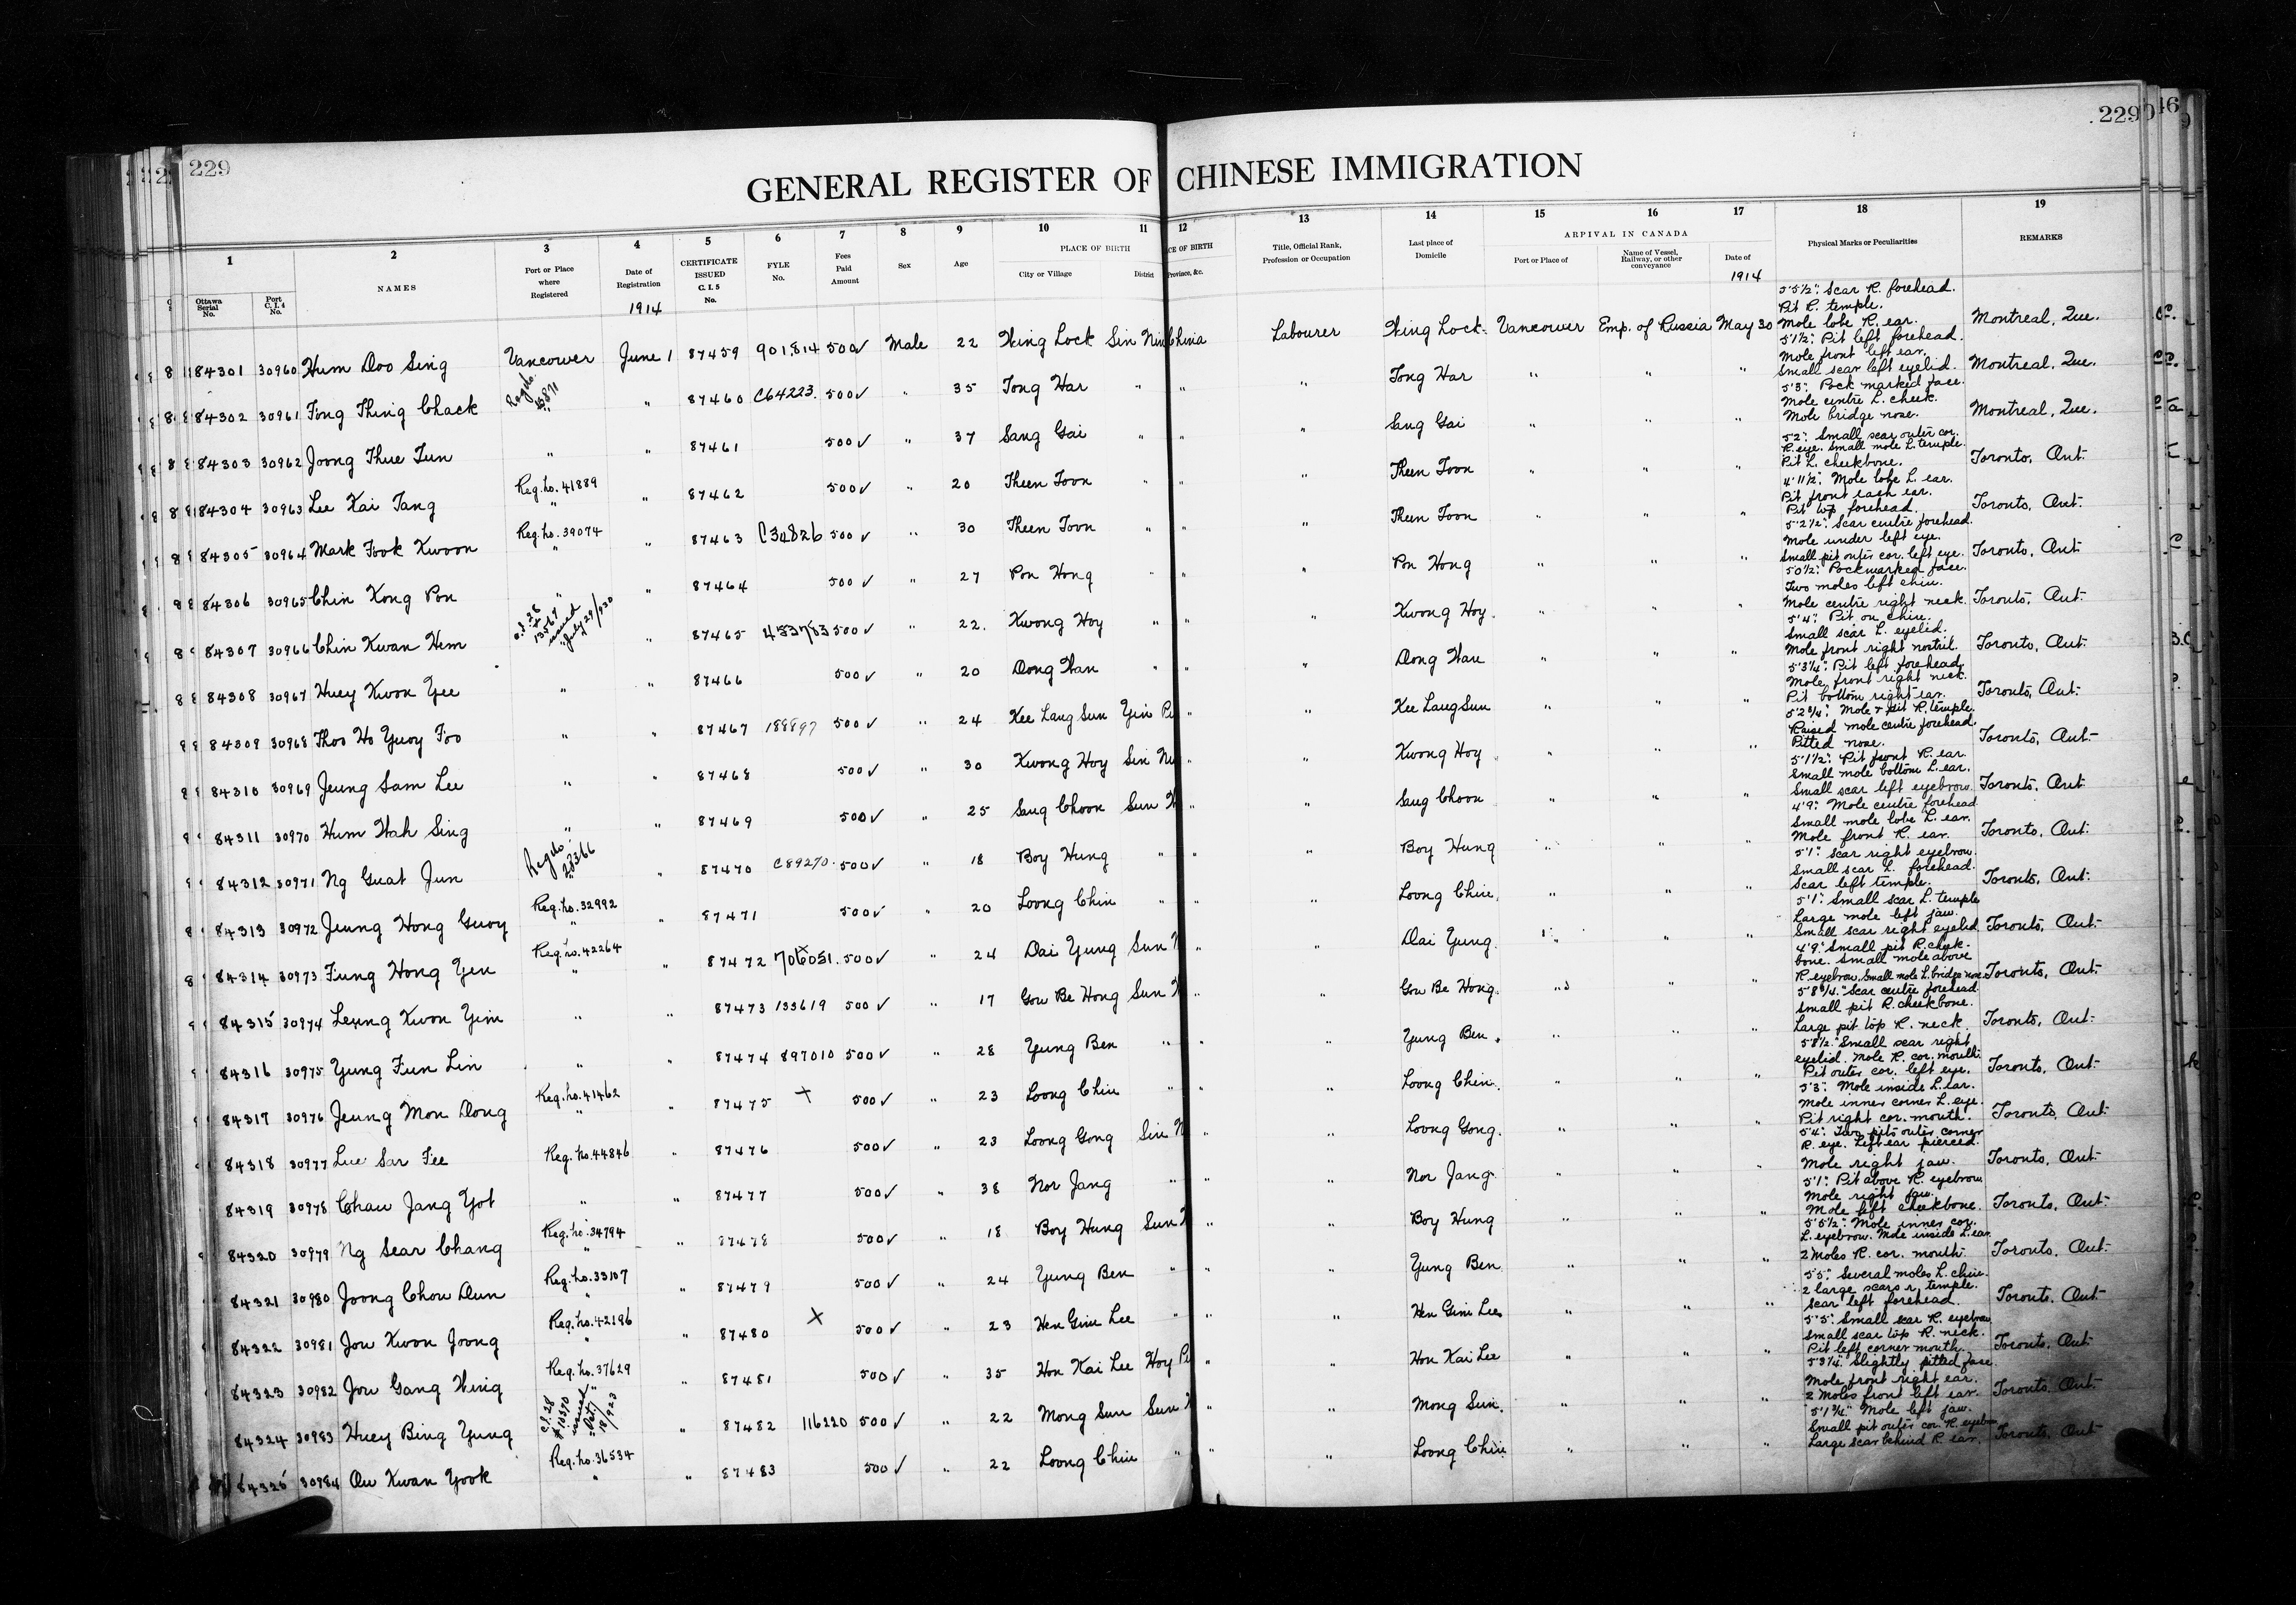 229
2290
46
GENERAL REGISTER OF CHINESE IMMIGRATION
1 2 3 4 5 6 7 8 9 10 11 12 13 14 15 16 17 18 19
Ottawa Serial No. Port C.I.4 No. NAMES Port or Place where Registered Date of Registration CERTIFICATE ISSUED C.I.5 No. FYLE No. Fees Paid Amount Sex Age PLACE OF BIRTH City or Village District Province, &c. Title, Official Rank, Profession or Occupation Last place of Domicile ARRIVAL IN CANADA Port or Place of Name of Vessel, Railway, or other conveyance Date of Physical Marks or Peculiarities REMARKS
1914 1914
84301 30960 Hum Doo Sing Vancouver June 1 87459 901814 500 ✓ Male 22 Wing Lock Sin Nin China Labourer Wing Lock Vancouver Emp. of Russia May 30 5'5½". Scar R. forehead. Pit R. temple. Mole lobe R. ear. Montreal, Que.
84302 30961 Fong Thing Chack " " 87460 C64223. 500 ✓ " 35 Tong Har " " " Tong Har " " " 5'1½". Pit left forehead. Mole front left ear. Small scar left eyelid. Montreal, Que.
84303 30962 Joong Thue Tun " " 87461 500 ✓ " 37 Sang Gai " " " Sang Gai " " " 5'3". Pock marked face. Mole centre L. cheek. Mole bridge nose. Montreal, Que.
84304 30963 Lee Kai Tang Reg. no. 41889 " " 87462 500 ✓ " 20 Theen Toon " " " Theen Toon " " " 5'2". Small scar outer cor. R. eye. Small mole L. temple. Pit L. cheekbone. Toronto, Ont.
84305 30964 Mark Fook Kwoon Reg. no. 39074 " " 87463 C34826 500 ✓ " 30 Theen Toon " " " Theen Toon " " " 4'11½". Mole lobe L. ear. Pit front each ear. Pit top forehead. Toronto, Ont.
84306 30965 Chin Kong Pon " " 87464 500 ✓ " 27 Pon Hong " " " Pon Hong " " " 5'2½". Scar centre forehead. Mole under left eye. Small pit outer cor. left eye. Toronto, Ont.
84307 30966 Chin Kwan Hem C.I.28 # 13567 issued July 29/930 " " 87465 483783 500 ✓ " 22. Kwong Hoy " " " Kwong Hoy. " " " 5'0½". Pockmarked face. Two moles left chin. Mole centre right neck. Toronto, Ont.
84308 30967 Huey Kwon Yee " " 87466 500 ✓ " 20 Dong Wan " " " Dong Wan " " " 5'4". Pit on chin. Small scar L. eyelid. Mole front right nostril. Toronto, Ont.
84309 30968 Thoo Ho Yuoy Foo " " 87467 188897 500 ✓ " 24 Kee Lang Sun Yin P " " Kee Lang Sun " " " 5'3¼". Pit left forehead. Mole front right neck. Pit bottom right ear. Toronto, Ont.
84310 30969 Jeung Sam Lee " " 87468 500 ✓ " 30 Kwong Hoy Sin Ni " " Kwong Hoy " " " 5'2¾". Mole & pit R. temple. Raised mole centre forehead. Pitted nose. Toronto, Ont.
84311 30970 Hum Wah Sing " " 87469 500 ✓ " 25 Sang Choon Sun " " Sang Choon " " " 5'1½". Pit front R. ear. Small mole bottom L. ear. Small scar left eyebrow. Toronto, Ont.
84312 30971 Ng Guat Jun 28366 " " 87470 C89270. 500 ✓ " 18 Boy Hung " " " Boy Hung " " " 4'9". Mole centre forehead Small mole lobe L. ear. Mole front R. ear. Toronto, Ont.
84313 30972 Jeung Hong Guoy Reg. no. 32992 " " 87471 500 ✓ " 20 Loong Chin " " " Loong Chin, " " " 5'1". Scar right eyebrow. Small scar L. forehead. Scar left temple. Toronto, Ont.
84314 30973 Fung Hong Yen Reg. no. 42264 " " 87472 706051. 500 ✓ " 24 Dai Yung Sun " " Dai Yung. " " " 5'1". Small scar L. temple Large mole left jaw. Small scar right eyelid Toronto, Ont.
84315 30974 Leung Kwon Yim " " 87473 133619 500 ✓ " 17 Gow Be Hong Sun " " Gow Be Hong. " " " 4'9". Small pit R. cheek-bone. Small mole above R. eyebrow. Small mole L. bridge nose Toronto, Ont.
84316 30975 Yung Fun Lin " " 87474 897010 500 ✓ " 28 Yung Ben " " " Yung Ben. " " " 5'8¾". Scar centre forehead. Small pit R. cheekbone. Large pit top R. neck. Toronto, Ont.
84317 30976 Jeung Mon Dong Reg. no. 41462 " " 87475 + 500 ✓ " 23 Loong Chin " " " Loong Chin. " " " 5'8½". Small scar right eyelid. Mole R. cor. mouth. Pit outer cor. left eye. Toronto, Ont.
84318 30977 Lue Sar Fee Reg. no. 44846 " 87476 500 ✓ " 23 Loong Gong Sin N " " Loong Gong. " " " 5'3". Mole inside L. ear. Mole inner corner L. eye. Pit right cor. mouth. Toronto, Ont.
84319 30978 Chau Jang Yot " " 87477 500 ✓ " 38 Nor Jang " " " Nor Jang. " " " 5'4". Two pits outer corner R. eye. Left ear pierced. Mole right jaw. Toronto, Ont.
84320 30979 Ng Sear Chang Reg. no. 34794 " " 87478 500 ✓ " 18 Boy Hung Sun " " Boy Hung " " " 5'1". Pit above R. eyebrow Mole right jaw. Mole left cheekbone. Toronto, Ont.
84321 30980 Joong Chou Dun Reg. no. 33107 " " 87479 500 ✓ " 24 Yung Ben " " " Yung Ben " " " 5'5½". Mole inner cor. L. eyebrow. Mole inside L. ear. 2 Moles R. cor. mouth. Toronto, Ont.
84322 30981 Jou Kwon Joong Reg. no. 42196 " " 87480 X 500 ✓ " 23 Hen Gim Lee " " " Hen Gim Lee " " " 5'5". Several moles L. chin. 2 large scars r. temple. Scar left forehead. Toronto, Ont.
84323 30982 Jou Gang Hing Reg. no. 37629 " " 87481 500 ✓ " 35 Hon Kai Lee Hoy P " " Hon Kai Lee " " " 5'5". Small scar R. eyebrow Small scar top R. neck. Pit left corner mouth. Toronto, Ont.
84324 30983 Huey Bing Yung C.I.28 # 10390 issued 18/923 " " 87482 116220 500 ✓ " 22 Mong Sun Sun " " Mong Sun. " " " 5'3¼". Slightly pitted face Mole front right ear. 2 Moles front left ear. Toronto, Ont.
84325 30984 Ou Kwan Yook Reg. no. 36534 " " 87483 500 ✓ " 22 Loong Chin " " " Loong Chin. " " " 5'1¾". Mole left jaw. Small pit outer cor. R. eyebrow Large scar behind R. ear. Toronto, Ont.